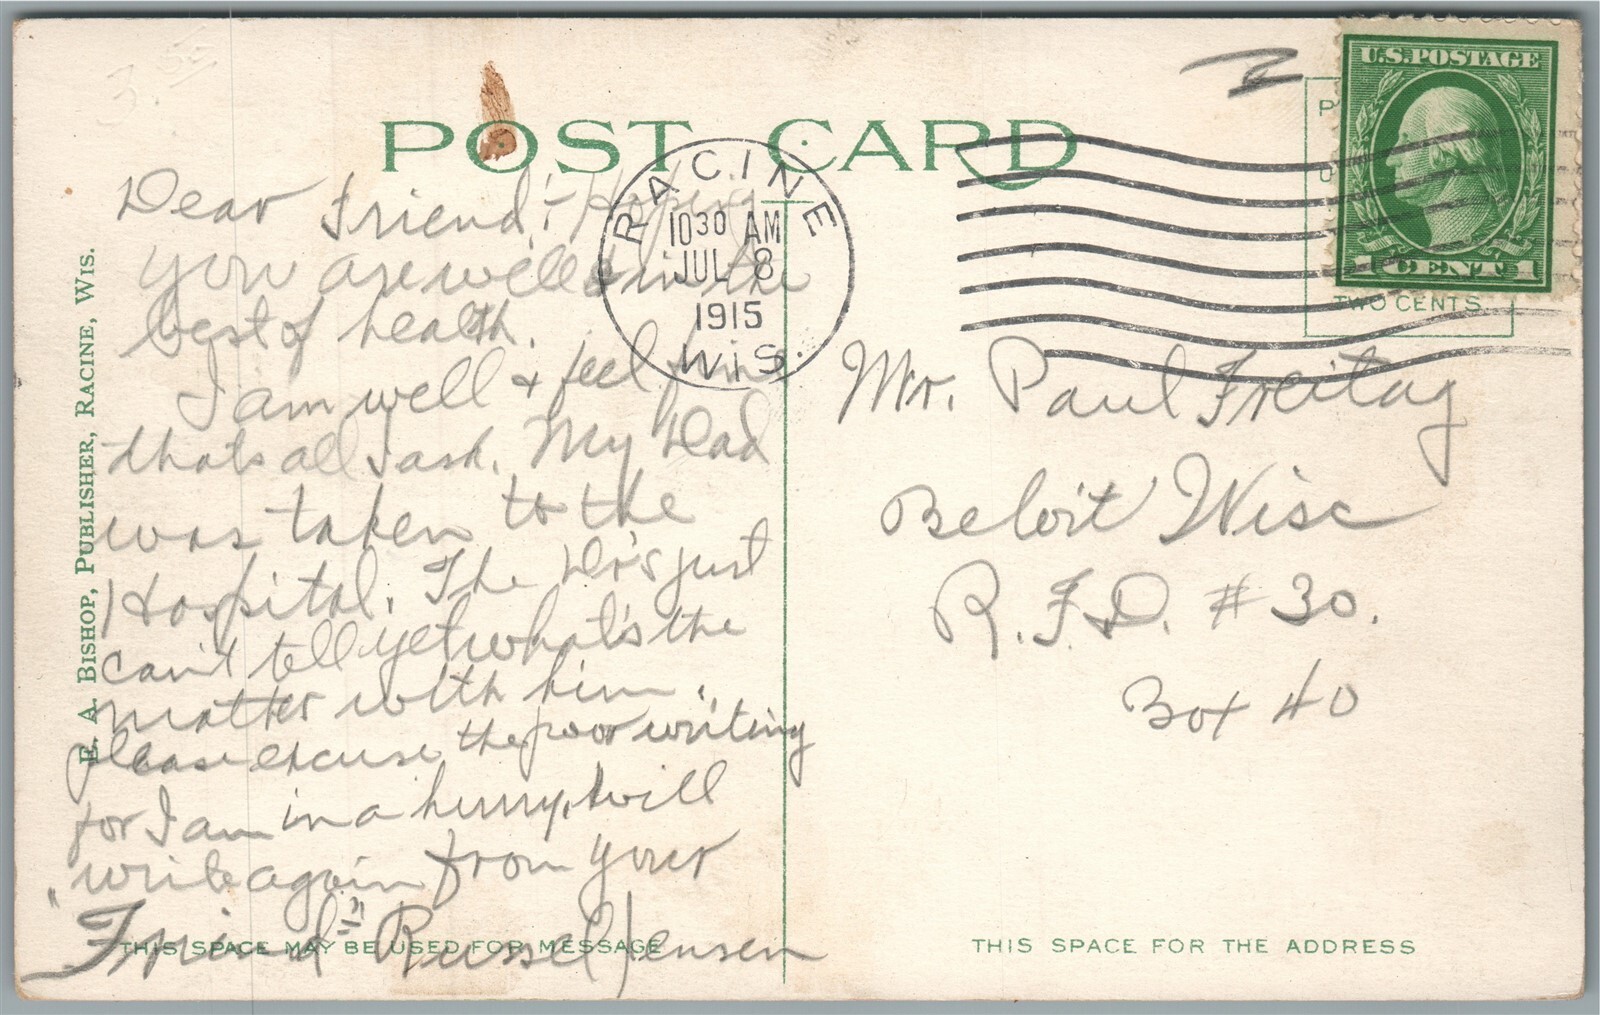 3.50
POST CARD
U.S. POSTAGE
1 CENT 1
TWO CENTS
RACINE
10 30 AM
JUL 8
1915
WIS.
E. A. BISHOP, PUBLISHER, RACINE, WIS.
Dear Friend:- Hoping
you are well & in the
best of health.
I am well & feel fine
thats all I ask. My Dad
was taken to the
Hospital. The Dr's just
can't tell yet what's the
matter with him.
please excuse the poor writing
for I am in a hurry, & will
write again from your
"Friend" Russel Jensen
THIS SPACE MAY BE USED FOR MESSAGE
Mr. Paul Freitag
Beloit Wisc
R.F.D. # 30.
Box 40
THIS SPACE FOR THE ADDRESS